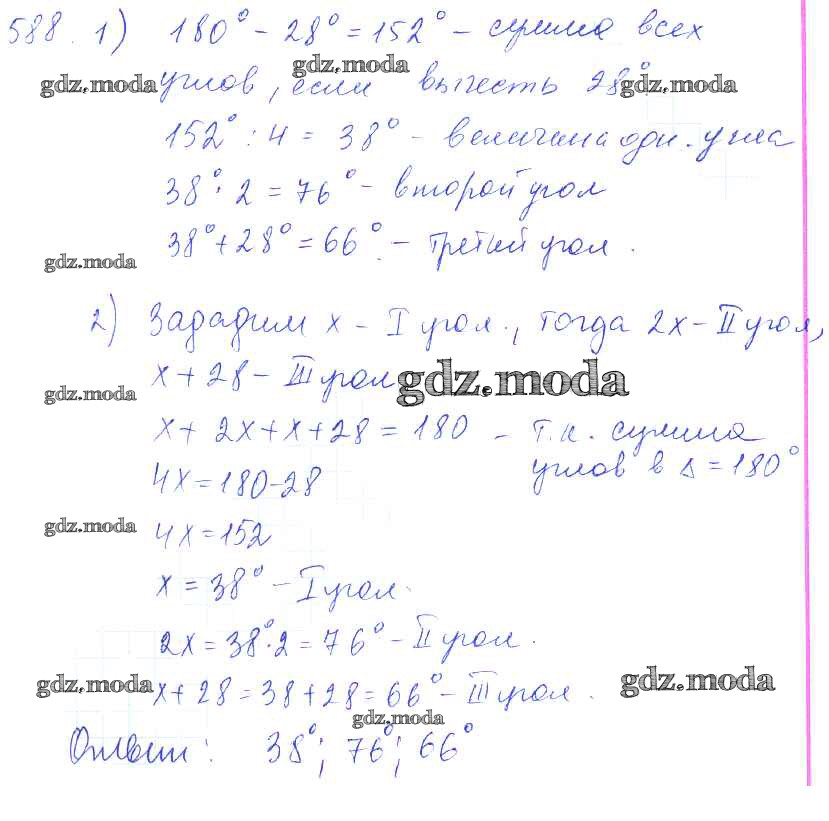 588. 1) 180° - 28° = 152° - сумма всех
gdz.moda
gdz.moda углов, если вычесть 28° gdz.moda
152° : 4 = 38° - величина одн. угла
38° · 2 = 76° - второй угол
38° + 28° = 66° - третий угол.
gdz.moda
2) Зададим x - I угол, тогда 2x - II угол,
x + 28 - III угол gdz.moda
gdz.moda
x + 2x + x + 28 = 180 - т.к. сумма
углов в Δ = 180°
4x = 180-28
gdz.moda 4x = 152
x = 38° - I угол.
2x = 38°·2 = 76° - II угол.
gdz.moda x + 28 = 38 + 28 = 66° - III угол. gdz.moda
gdz.moda
Ответ: 38°; 76°; 66°